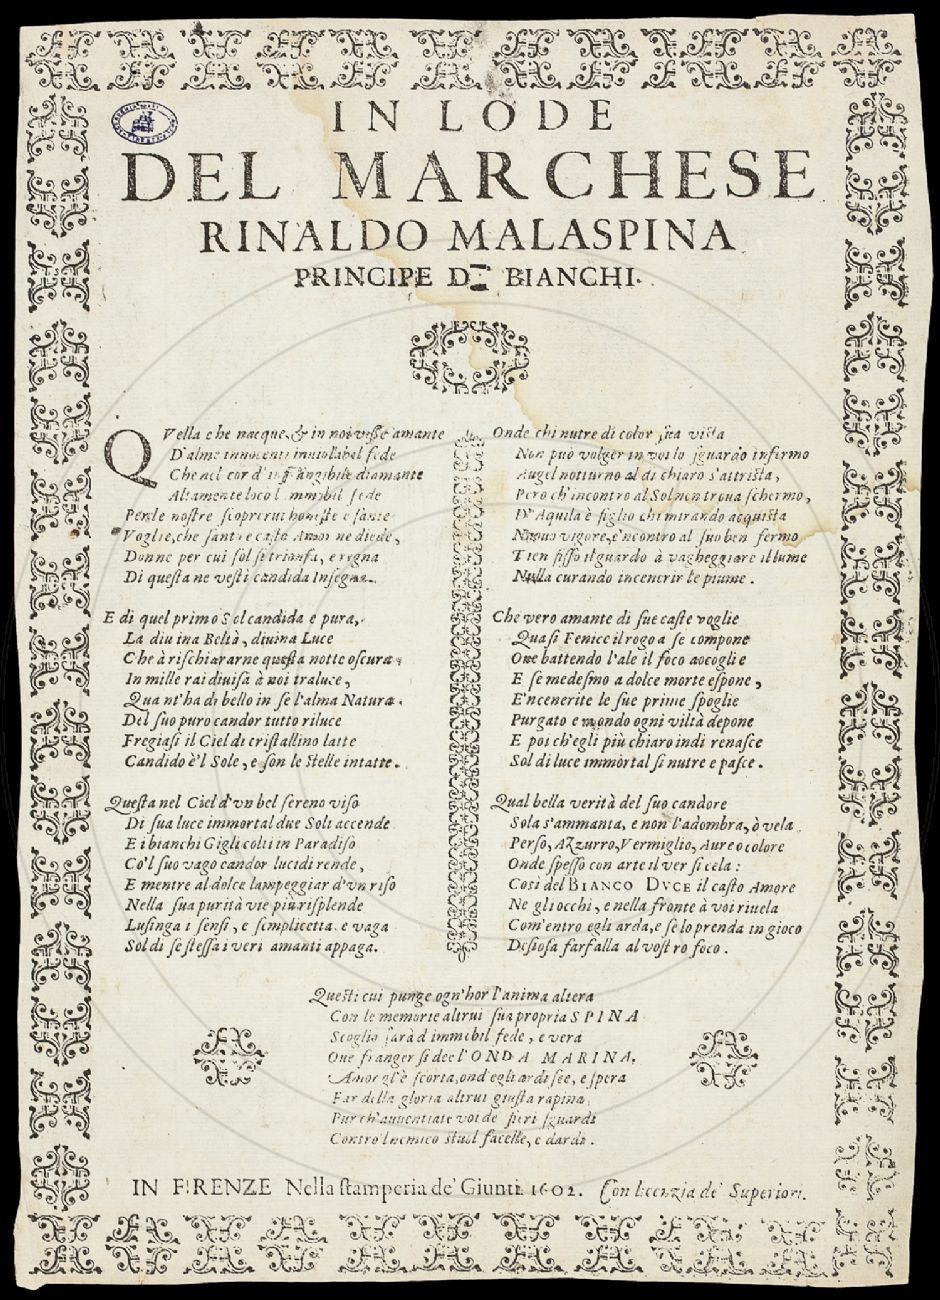 IN LODE
DEL MARCHESE
RINALDO MALASPINA
PRINCIPE DE BIANCHI.
QVella che nacque, & in noi visse amante
D'alme innocenti inuiolabel fede
Che nel cor d'infrangibile diamante
Altamente locò immobil fede
Per le nostre scoprirui honeste e sante
Voglie, che santo e casto Amor ne diede,
Donne per cui sol si trionfa, e regna
Di questa ne vesti candida Insegna.
E di quel primo Sol candida e pura,
La diuina Beltà, diuina Luce
Che à rischiararne questa notte oscura,
In mille rai diuisa à noi traluce,
Quant'ha di bello in se l'alma Natura.
Del suo puro candor tutto riluce
Fregiasi il Ciel di cristallino latte
Candido è'l Sole, e son le Stelle intatte.
Questa nel Ciel d'vn bel sereno viso
Di sua luce immortal due Soli accende
E i bianchi Gigli colti in Paradiso
Co'l suo vago candor lucidi rende,
E mentre al dolce lampeggiar d'vn riso
Nella sua purità vie più risplende
Lusinga i sensi, e semplicetta e vaga
Sol di se stessa i veri amanti appaga.
Onde chi nutre di color sua vista
Non può volger in voi lo sguardo infermo
Augel notturno al dì chiaro s'attrista,
Però ch'incontro al Sol non troua schermo,
D'Aquila è figlio chi mirando acquista
Nuouo vigore, e'ncontro al suo ben fermo
Tien fisso il guardo à vagheggiare il lume
Nulla curando incenerir le piume.
Che vero amante di sue caste voglie
Quasi Fenice il rogo a se compone
Oue battendo l'ale il foco accoglie
E se medesmo a dolce morte espone,
E'ncenerite le sue prime spoglie
Purgato e mondo ogni viltà depone
E poi ch'egli più chiaro indi renasce
Sol di luce immortal si nutre e pasce.
Qual bella verità del suo candore
Sola s'ammanta, e non l'adombra, ò vela
Perso, Azzurro, Vermiglio, Aureo colore
Onde spesso con arte il ver si cela:
Così del BIANCO DVCE il casto Amore
Ne gli occhi, e nella fronte à voi riuela
Com'entro egli arda, e se lo prenda in gioco
Desiosa farfalla al vostro foco.
Questi cui punge ogn'hor l'anima altera
Con le memorie altrui sua propria SPINA
Scoglio sarà d'immobil fede, e vera
Oue franger si dee l'ONDA MARINA,
Amor gl'è scorta, ond'egli ardisce, e spera
Far della gloria altrui giusta rapina,
Pur ch'auuentiate voi de' fieri sguardi
Contro'l nemico stuol facelle, e dardi.
IN FIRENZE Nella stamperia de' Giunti. 1602. Con licenzia de' Superiori.